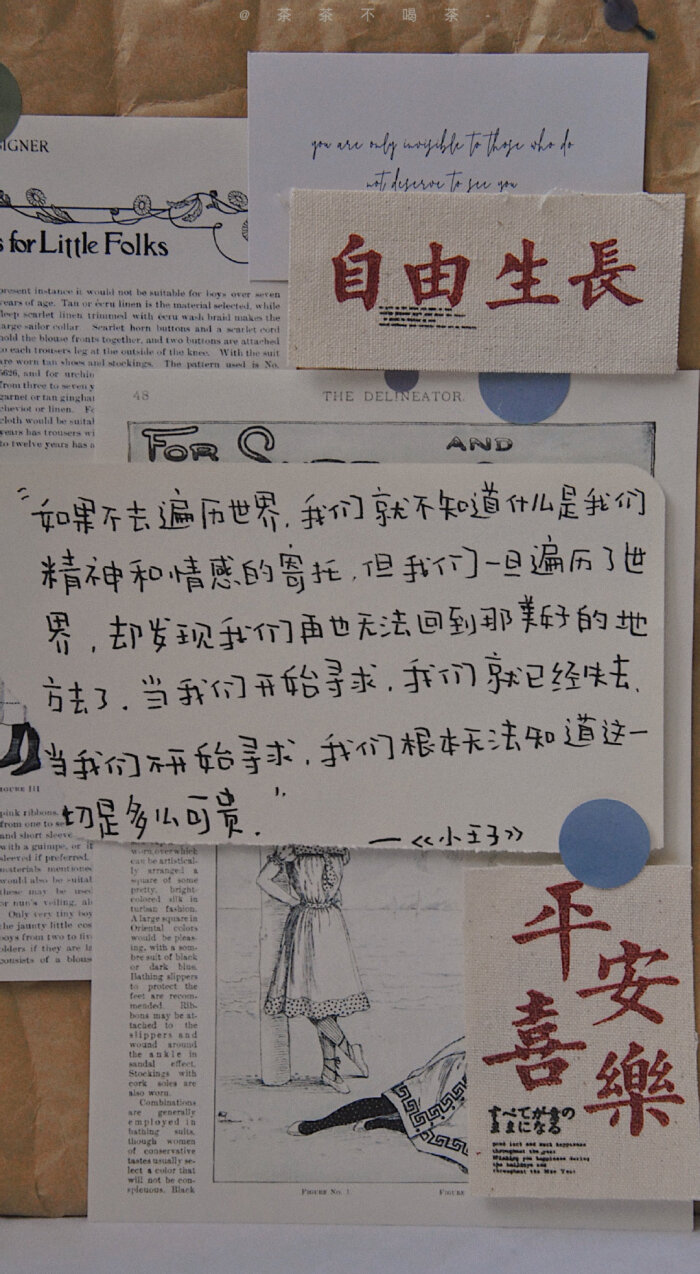 @茶茶不喝茶
IGNER
you are only invisible to those who do
not deserve to see you
自由生長
s for Little Folks
present instance it would not be suitable for boys over seven
years of age. Tan or écru linen is the material selected, while
deep scarlet linen trimmed with écru wash braid makes the
large sailor collar. Scarlet horn buttons and a scarlet cord
hold the blouse fronts together, and two buttons are attached
to each trousers leg at the outside of the knee. With the suit
are worn tan shoes and stockings. The pattern used is No.
5626, and for urchin
from three to seven y
garnet or tan gingha
cheviot or linen. Fo
cloth would be suita
years has trousers wi
to twelve years has a
48
THE DELINEATOR.
FOR
AND
“如果不去遍历世界，我们就不知道什么是我们
精神和情感的寄托，但我们一旦遍历了世
界，却发现我们再也无法回到那美好的地
方去了．当我们开始寻求，我们就已经失去，
当我们不开始寻求，我们根本无法知道这一
切是多么可贵．”
—《小王子》
FIGURE III
pink ribbons.
from one to se
and short sleeve
with a guimpe, or it
sleeved if preferred.
materials mentione
would also be suitab
these may be used
or nun's veiling, al
Only very tiny boy
the jaunty little cos
boys from two to fi
olders if they are la
consists of a blous
worn over which
can be artistical-
ly arranged a
square of some
pretty, bright-
colored silk in
turban fashion.
A large square in
Oriental colors
would be pleas-
ing, with a som-
bre suit of black
or dark blue.
Bathing slippers
to protect the
feet are recom-
mended. Rib-
bons may be at-
tached to the
slippers and
wound around
the ankle in
sandal effect.
Stockings with
cork soles are
also worn.
Combinations
are generally
employed in
bathing suits,
though women
of conservative
tastes usually se-
lect a color that
will not be con-
spicuous. Black
FIGURE NO. 1
FIGURE
平安
喜樂
すべてが君の
ままになる
good luck and much happiness
throughout the year
Wishing you happiness during
the holidays and
throughout the New Year